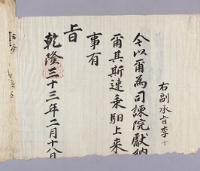 右副承旨李
令以爾爲司諫院獻納
爾其斯速乘馹上來
事有
旨
乾隆三十三年二月十八日